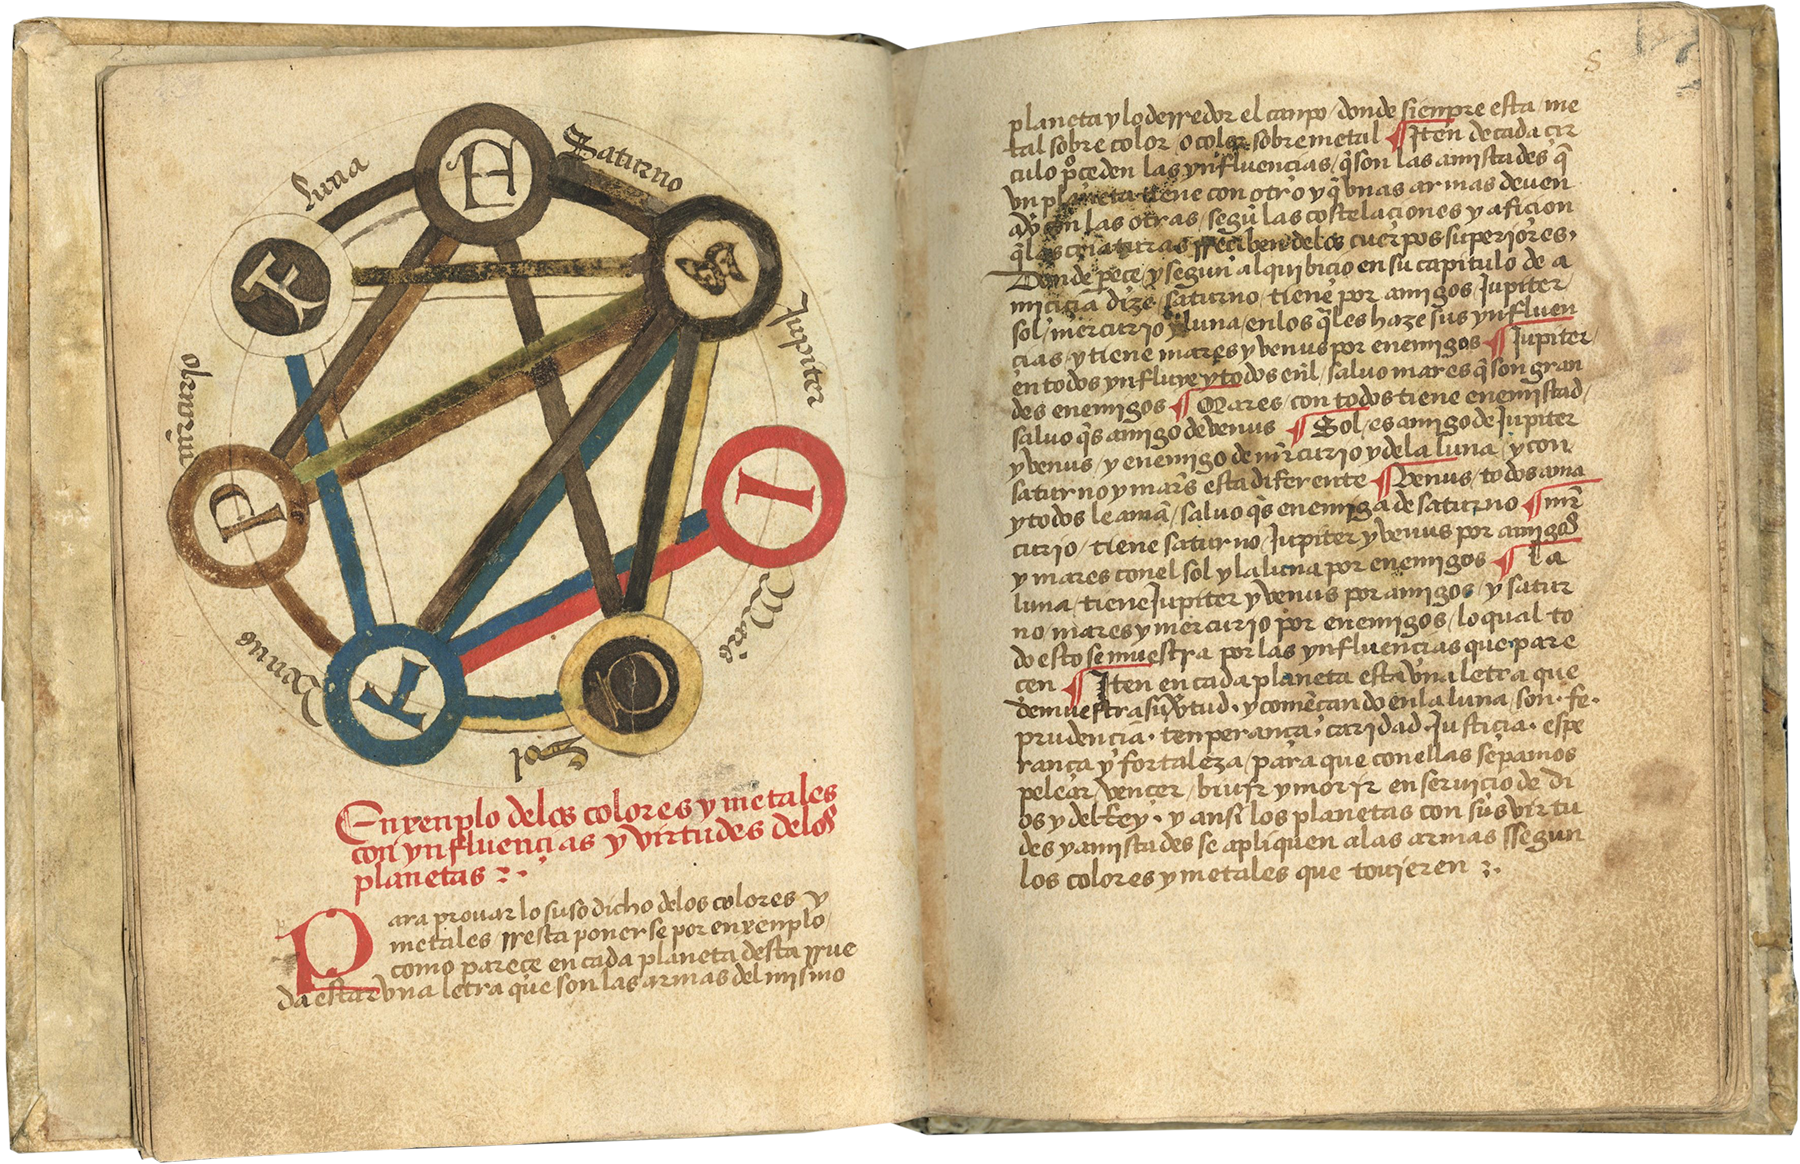 Luna
Saturno
Jupiter
Maris
Sol
Venus
mircurio
F
E
I
C
T
P
Enxenplo delos colores y metales
con ynfluencias y virtudes delos
planetas :~.
Para prouar lo suso dicho delos colores y
metales / rresta ponerse por enxenplo /
como parece en cada planeta desta rrue
da estar vna letra que son las armas del mismo
planeta y lo derredor el canpo / donde sienpre esta / me
tal sobre color / o color sobre metal ¶ Iten de cada cir
culo proceden las ynfluencias / q̃ son las amistades q̃
vn planeta tiene con otro y q̃ vnas armas deuen
con las otras / segũ las costelaciones y aficion
q̃ las criaturas rreciben delos cuerpos superiores,
Donde pece / y segun alquibicio en su capitulo de a
micizia dize / saturno / tiene por amigos / Jupiter /
sol / mercurio y luna / en los q̃les haze sus ynfluen
cias / y tiene mares y venus por enemigos ¶ Jupiter /
en todos ynfluye y todos enl / saluo mares q̃ son gran
des enemigos ¶ Mares / con todos tiene enemistad /
saluo q̃s amigo de venus ¶ Sol / es amigo de Jupiter
y venus / y enemigo de mr̃curio y dela luna / y con
saturno y mar̃s esta diferente ¶ Venus / todos ama
y todos le amã / saluo q̃s enemiga de saturno ¶ mr̃
curio / tiene saturno / Jupiter y venus por amigos
y mares con el sol y la luna por enemigos ¶ La
luna / tiene Jupiter y venus por amigos / y satur
no / mares y mercurio por enemigos / lo qual to
do esto se muestra por las ynfluencias que pare
cen ¶ Iten en cada planeta esta vna letra que
demuestra su v̾tud . y comẽcando en la luna / son . fe .
prudencia . tenperança . caridad . Justicia . espe
rança y fortaleza / para que con ellas sepamos
pelear / vençer / biuir y morir en seruicio de di
os y del Rey . y ansi los planetas con sus virtu
des y amistades se apliquen alas armas ssegun
los colores y metales que touieren :~.